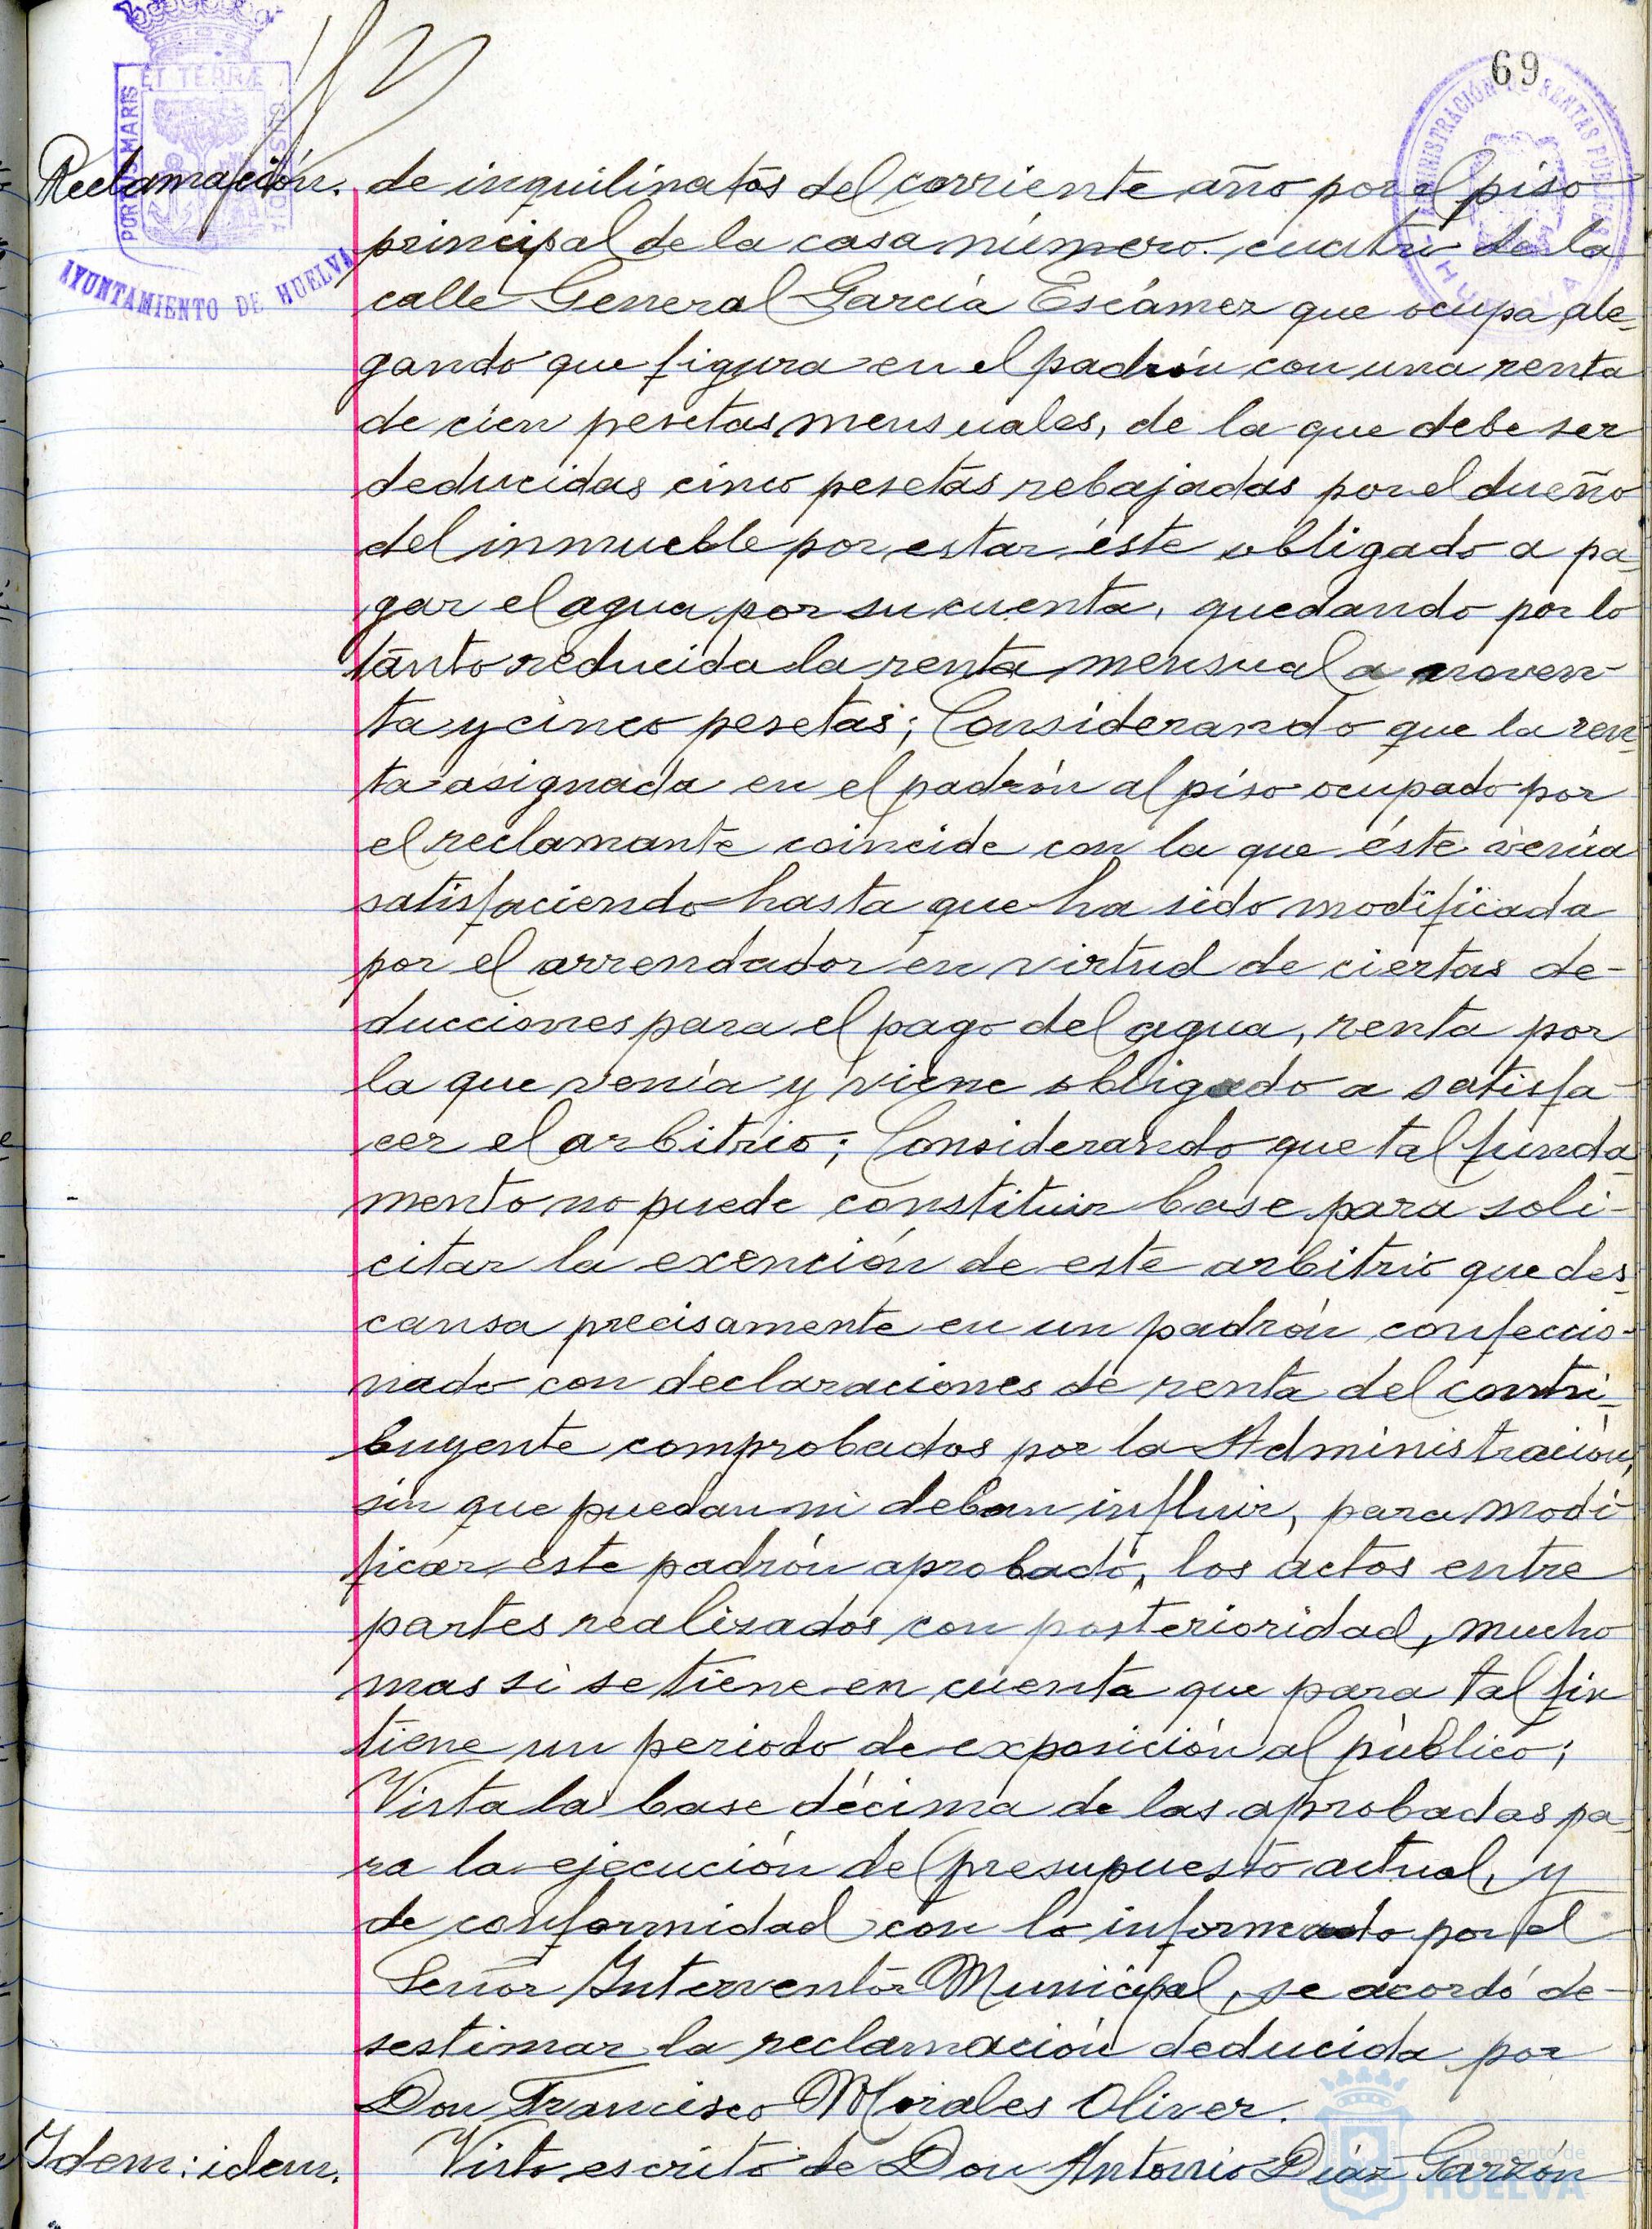 69
PORTUS MARIS
ET TERRÆ
CUSTODIA
AYUNTAMIENTO DE HUELVA
ADMINISTRACIÓN DE RENTAS PÚBLICAS
HUELVA
Reclamación.
de inquilinatos del corriente año por el piso
principal de la casa número cuatro de la
calle General García Escámez que ocupa, ale-
gando que figura en el padrón con una renta
de cien pesetas mensuales, de la que debe ser
deducidas cinco pesetas rebajadas por el dueño
del inmueble por estar éste obligado a pa-
gar el agua por su cuenta, quedando por lo
tanto reducida la renta mensual a noven-
ta y cinco pesetas; Considerando que la ren-
ta asignada en el padrón al piso ocupado por
el reclamante coincide con la que éste venía
satisfaciendo hasta que ha sido modificada
por el arrendador en virtud de ciertas de-
ducciones para el pago del agua, renta por
la que venía y viene obligado a satisfa-
cer el arbitrio; Considerando que tal funda-
mento no puede constituir base para soli-
citar la exención de este arbitrio que des-
cansa precisamente en un padrón confeccio-
nado con declaraciones de renta del contri-
buyente comprobados por la Administración,
sin que puedan ni deban influir, para modi-
ficar este padrón aprobado, los actos entre
partes realizados con posterioridad, mucho
mas si se tiene en cuenta que para tal fin
tiene un periodo de exposición al público;
Vista la base décima de las aprobadas pa-
ra la ejecución del presupuesto actual, y
de conformidad con lo informado por el
Señor Interventor Municipal, se acordó de-
sestimar la reclamación deducida por
Don Francisco Morales Oliver.
Idem: idem.
Visto escrito de Don Antonio Díaz Garzón
Ayuntamiento de
HUELVA